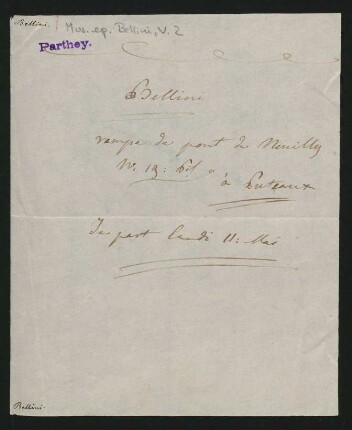 Bellini.
Mus. ep. Bellini, V. 2
Parthey.
Bellini
rampe de pont de Neuilly
No. 19: bis
à Puteaux
Je part lundi 11: Mai
Bellini.